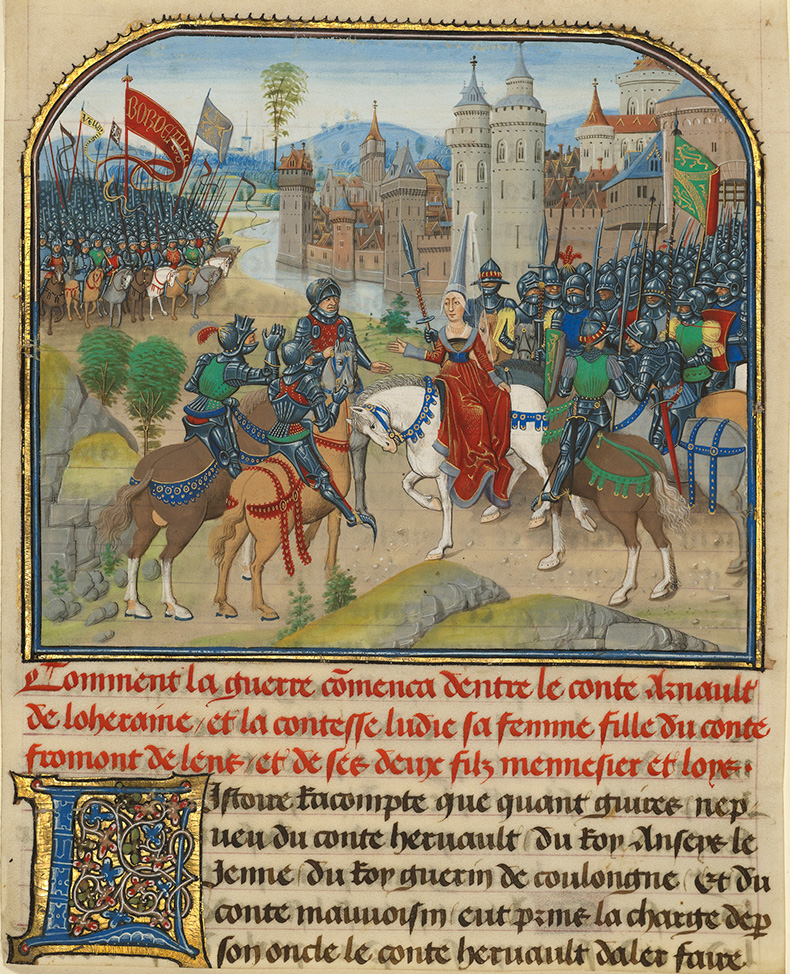 Comment la guerre cõmenca dentre le conte Arnault
de loheraine / et la contesse ludie sa femme fille du conte
fromont de lens / et de ses deux filz mennesier et loys :
LIstoire Racompte que quant guires nep
ueu du conte heruault / du Roy Anseys le
Jenne / du Roy guerin de coulongne / Et du
conte mauuoisin eut prins la charge de ꝑ
son oncle le conte heruault daler faire